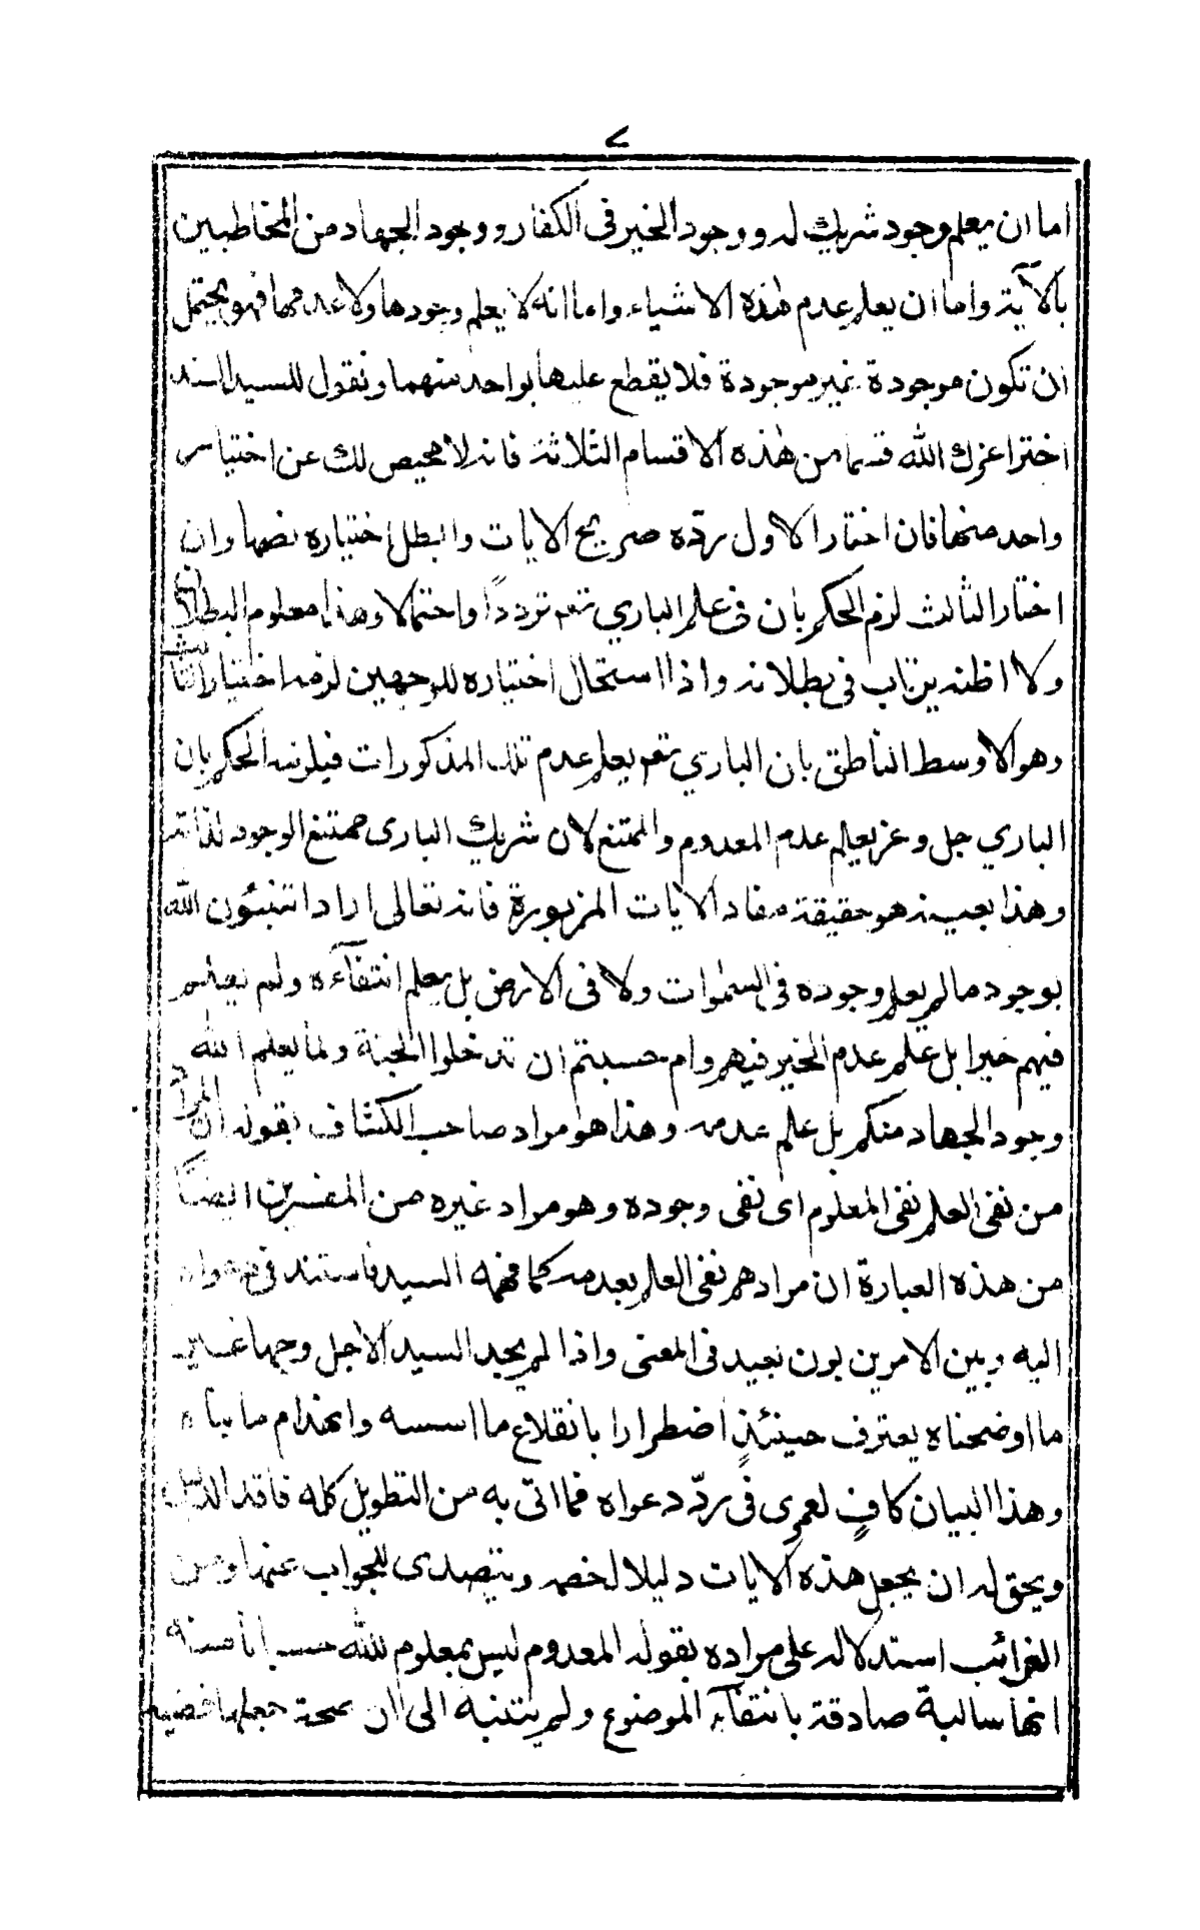 ٧
اما ان يعلم وجود شريك له ووجود الخير فى الكفار ووجود الجهاد من المخاطبين
بالآية واما ان يعلم عدم هذه الاشياء واما انه لا يعلم وجودها ولا عدمها فهو يحتمل
ان تكون موجودة غير موجودة فلا يقطع عليها بواحد منهما ونقول للسيد السند
اختر اعزك الله قسما من هذه الاقسام الثلاثة فانه لا محيص لك عن اختيار
واحد منها فان اختار الاول ردّه صريح الايات وابطل اختياره نصها وان
اختار الثالث لزم الحكم بان فى علم الباري تعم ترددًا واحتمالا وهذا معلوم البطلان
ولا اظنه يرتاب فى بطلانه واذا استحال اختياره للوجهين لزمه اختيار الثالث
وهو الاوسط الناطق بان الباري تعم يعلم عدم تلك المذكورات فيلزمه الحكم بان
الباري جل وعز يعلم عدم المعدوم والممتنع لان شريك البارى ممتنع الوجود لذاته
وهذا بعينه هو حقيقة مفاد الايات المزبورة فانه تعالى اراد اتنبئون الله
بوجود ما لم يعلم وجوده فى السموات ولا فى الارض بل يعلم انتفآءه ولم يعلم
فيهم خيرا بل علم عدم الخير فيهم وام حسبتم ان تدخلوا الجنة ولما يعلم الله
وجود الجهاد منكم بل علم عدمه وهذا هو مراد صاحب الكشاف بقوله ان المراد
من نفى العلم نفى المعلوم اى نفى وجوده وهو مراد غيره من المفسرين ايضا
من هذه العبارة ان مرادهم نفى العلم بعدمه كما فهمه السيد فاستند فى دعواه
اليه وبين الامرين بون بعيد فى المعنى واذا لم يجد السيد الاجل وجها غير
ما اوضحناه يعترف حينئذٍ اضطرارا بانقلاع ما اسسه وانهدام ما بناه
وهذا البيان كافٍ لعمرى فى ردّ دعواه فما اتى به من التطويل كله فاقد الدليل
ويحق له ان يجعل هذه الايات دليلا لخصمه ويتصدى للجواب عنها ومن
الغرائب استدلاله على مراده بقوله المعدوم ليس بمعلوم لله حسبانا منه
انها سالبة صادقة بانتفآء الموضوع ولم يتنبه الى ان صحة جعلها قضية